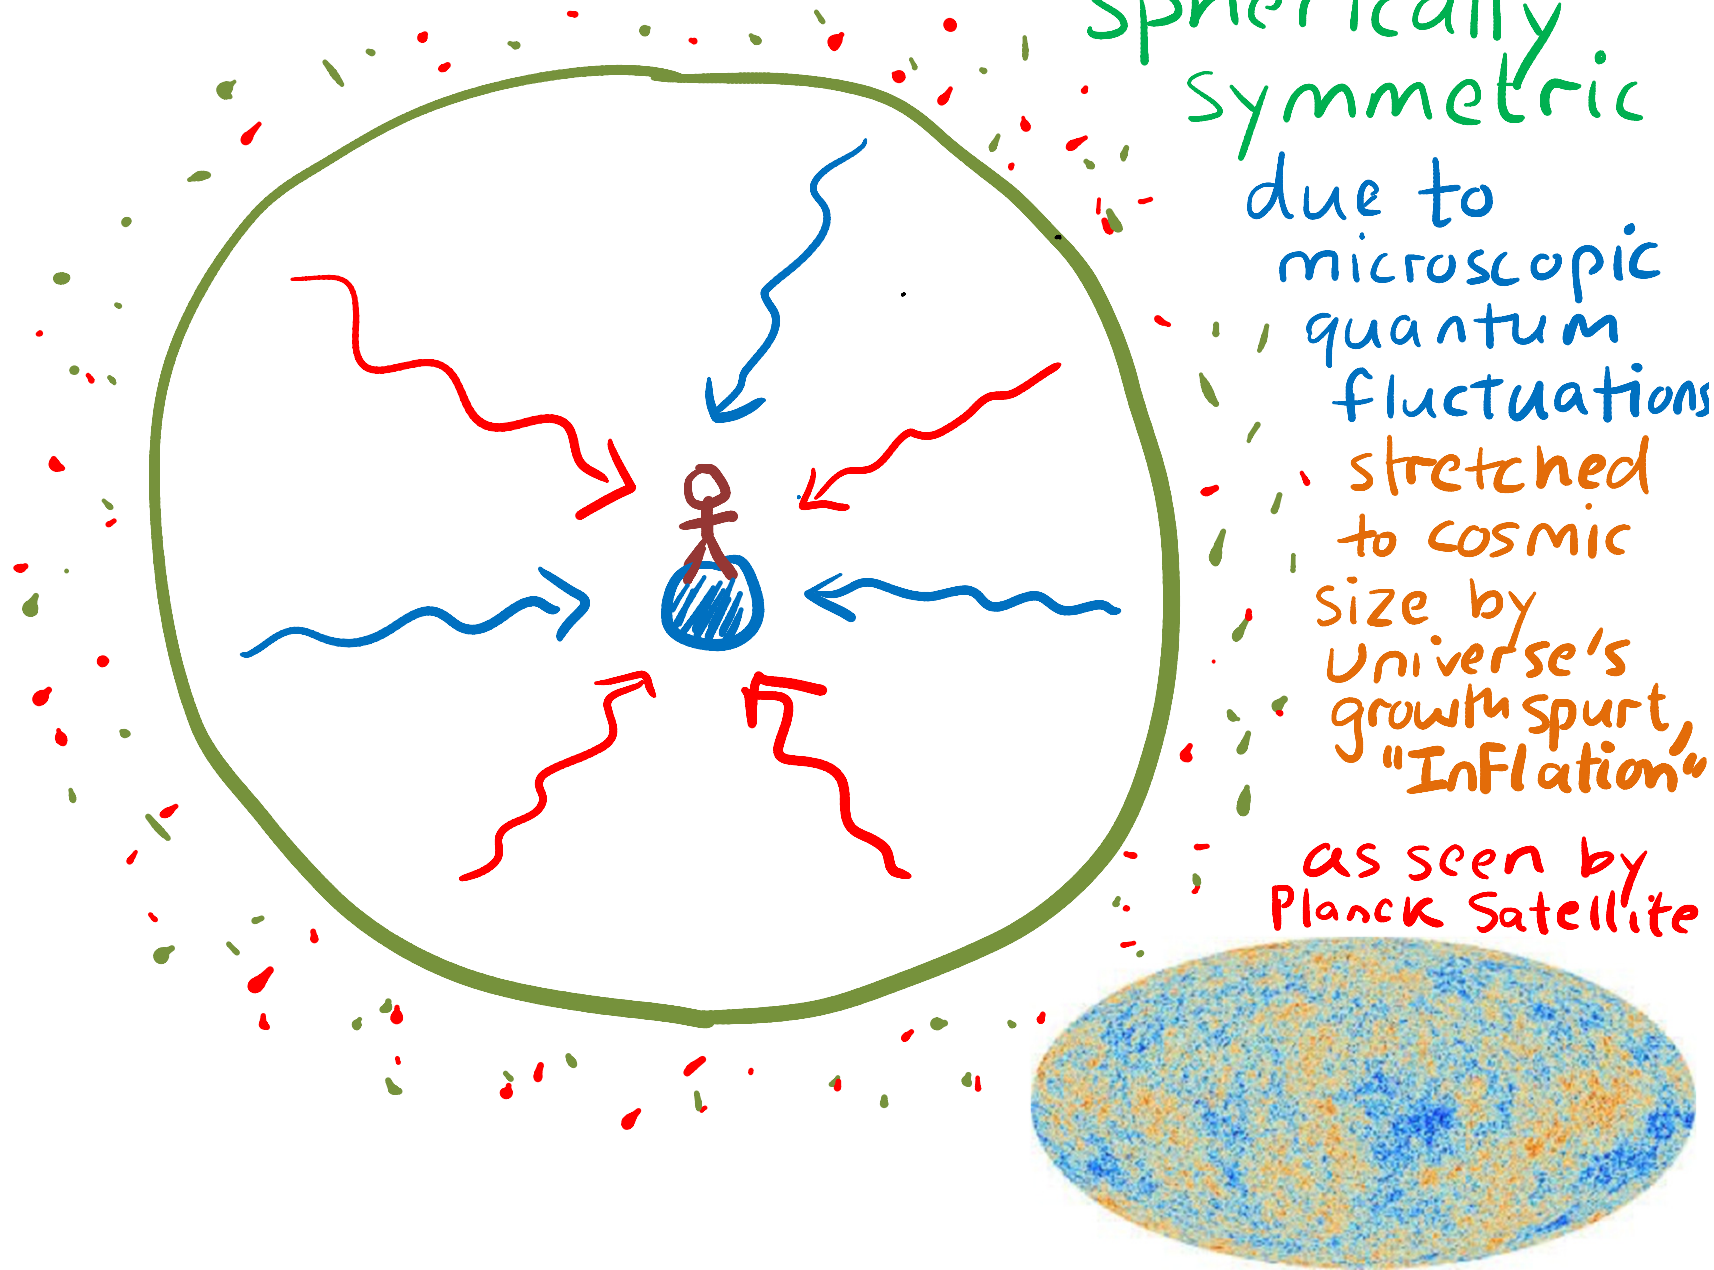 spherically
symmetric
due to
microscopic
quantum
fluctuations
stretched
to cosmic
size by
Universe's
growth spurt,
"InFlation"
as seen by
Planck Satellite